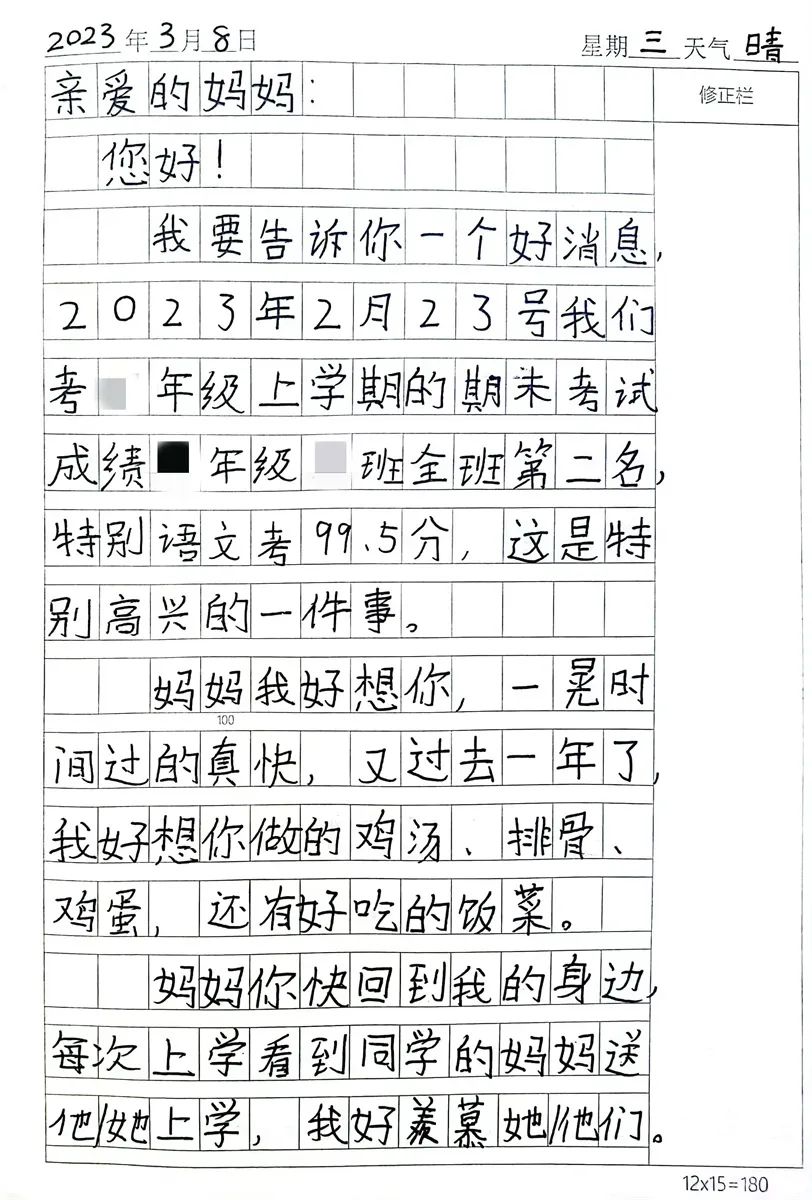 2023年3月8日 星期三 天气晴
修正栏
亲爱的妈妈：
您好！
我要告诉你一个好消息，
2023年2月23号我们
考 年级上学期的期末考试
成绩 年级 班全班第二名，
特别语文考99.5分，这是特
别高兴的一件事。
妈妈我好想你，一晃时
100
间过的真快，又过去一年了，
我好想你做的鸡汤、排骨、
鸡蛋，还有好吃的饭菜。
妈妈你快回到我的身边，
每次上学看到同学的妈妈送
他/她上学，我好羡慕她/他们。
12x15=180